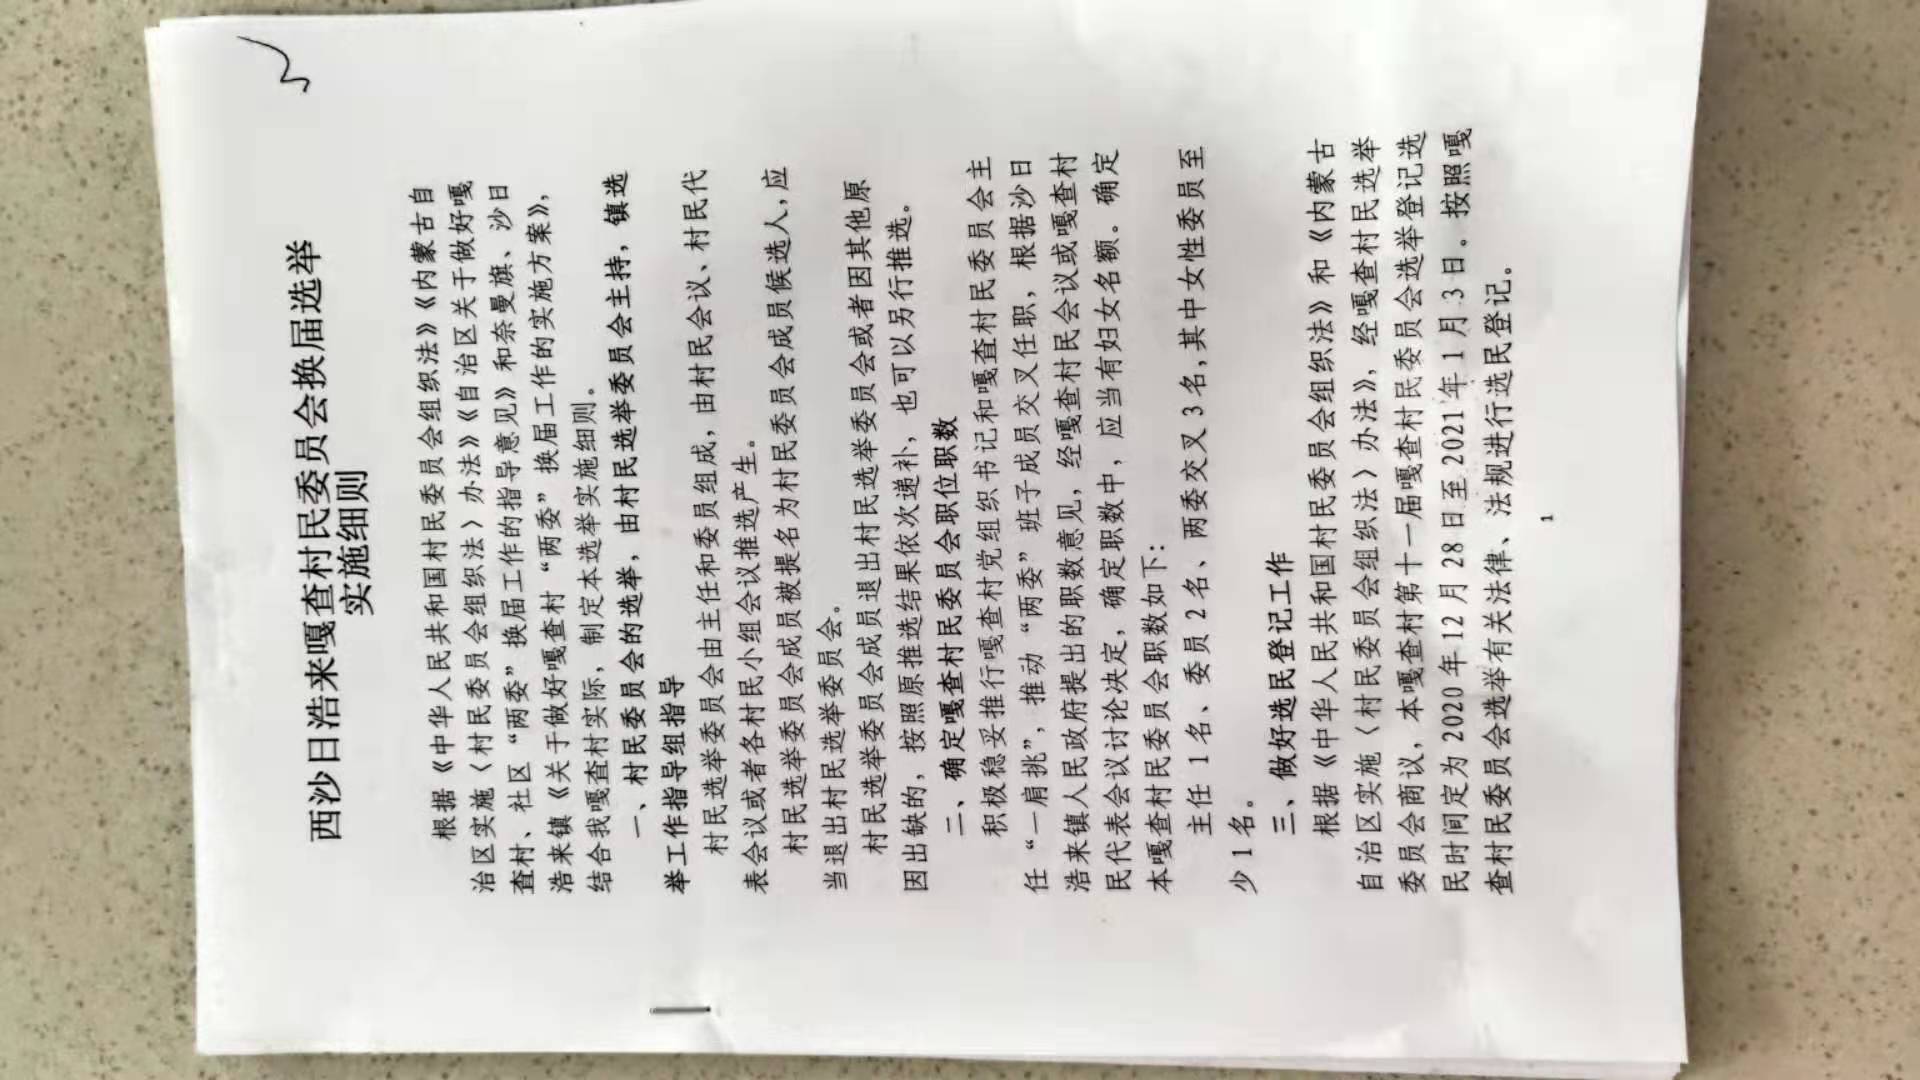 西沙日浩来嘎查村民委员会换届选举
实施细则
根据《中华人民共和国村民委员会组织法》《内蒙古自
治区实施〈村民委员会组织法〉办法》《自治区关于做好嘎
查村、社区“两委”换届工作的指导意见》和奈曼旗、沙日
浩来镇《关于做好嘎查村“两委”换届工作的实施方案》，
结合我嘎查村实际，制定本选举实施细则。
一、村民委员会的选举，由村民选举委员会主持，镇选
举工作指导组指导
村民选举委员会由主任和委员组成，由村民会议、村民代
表会议或者各村民小组会议推选产生。
村民选举委员会成员被提名为村民委员会成员候选人，应
当退出村民选举委员会。
村民选举委员会成员退出村民选举委员会或者因其他原
因出缺的，按照原推选结果依次递补，也可以另行推选。
二、确定嘎查村民委员会职位职数
积极稳妥推行嘎查村党组织书记和嘎查村民委员会主
任“一肩挑”，推动“两委”班子成员交叉任职，根据沙日
浩来镇人民政府提出的职数意见，经嘎查村民会议或嘎查村
民代表会议讨论决定，确定职数中，应当有妇女名额。确定
本嘎查村民委员会职数如下：
主任1名、委员2名、两委交叉3名，其中女性委员至
少1名。
三、做好选民登记工作
根据《中华人民共和国村民委员会组织法》和《内蒙古
自治区实施〈村民委员会组织法〉办法》，经嘎查村民选举
委员会商议，本嘎查村第十一届嘎查村民委员会选举登记选
民时间定为2020年12月28日至2021年1月3日。按照嘎
查村民委员会选举有关法律、法规进行选民登记。
1